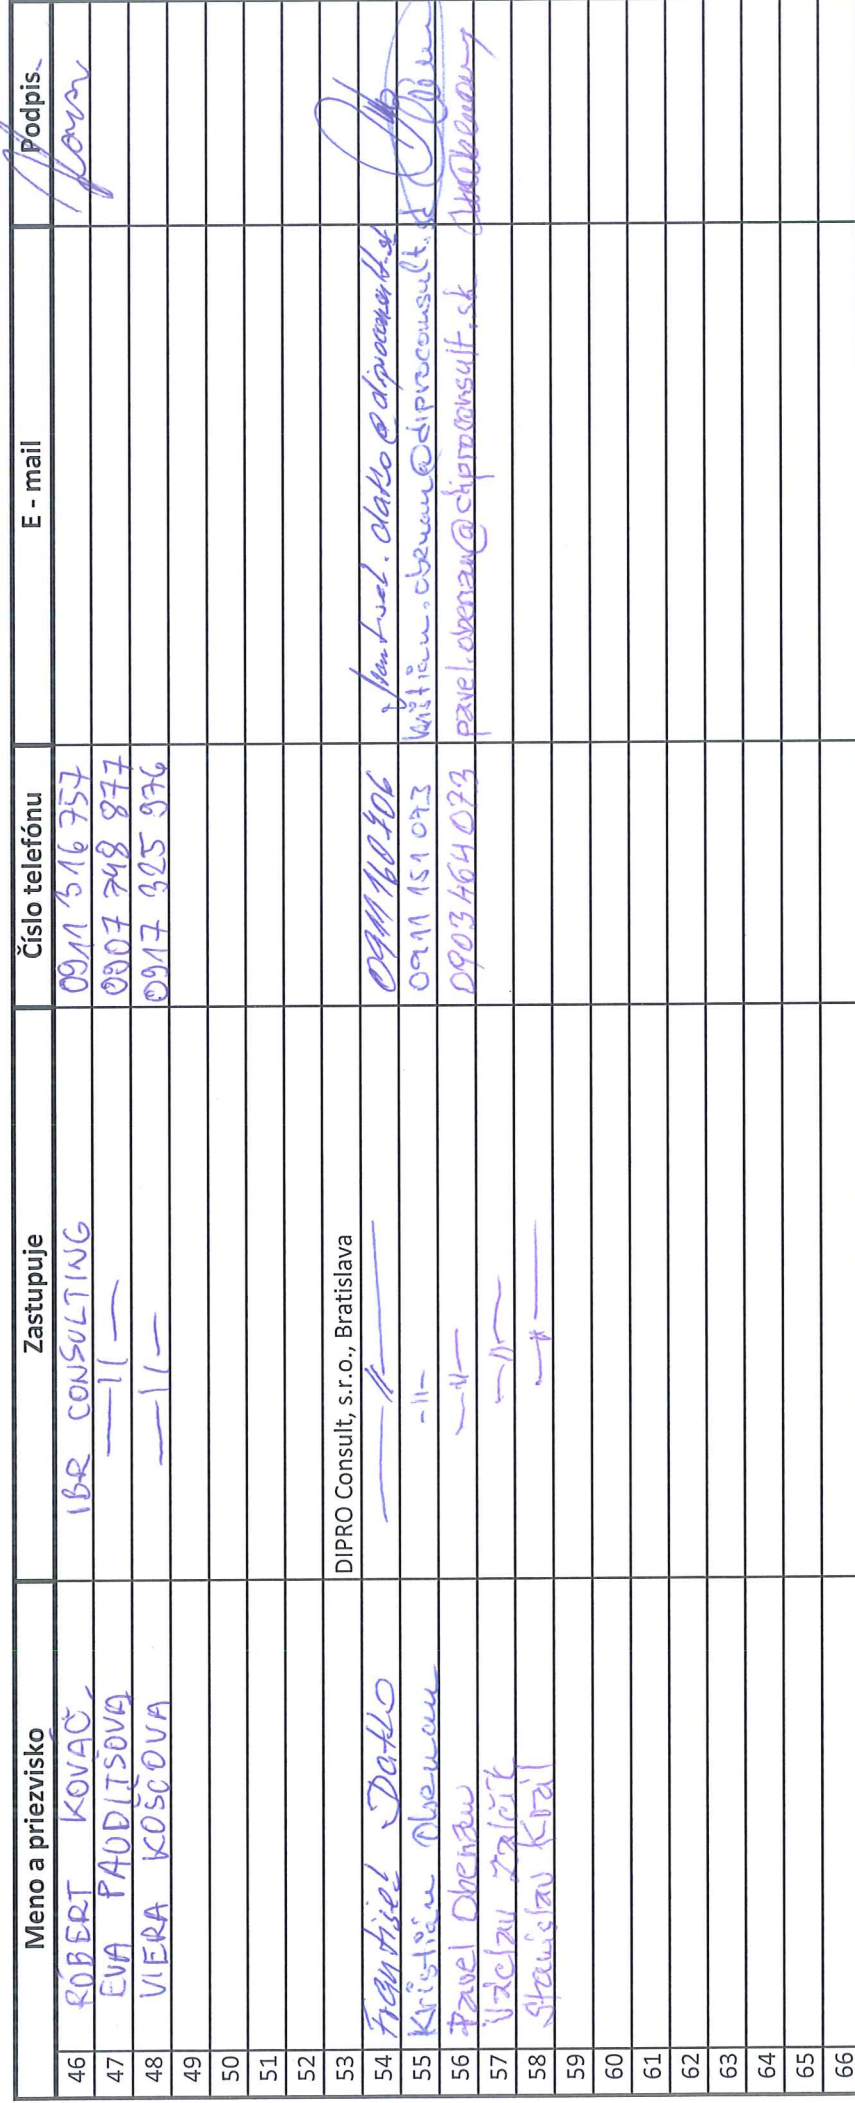 Meno a priezvisko Zastupuje Číslo telefónu E - mail Podpis
46 RÓBERT KOVAČ IBR CONSULTING 0911 316 757
47 EVA PAUDITŠOVÁ —11— 0907 748 877
48 VIERA KOŠČOVA —11— 0917 325 976
49
50
51
52
53 DIPRO Consult, s.r.o., Bratislava
54 František Datko —11— 0911 160 706 frantisek.datko@diproconsult.sk
55 Kristián Obenau -11- 0911 151 073 kristian.obenau@diproconsult.sk
56 Pavel Obenau —11— 0903 464 073 pavel.obenau@diproconsult.sk
57 Václav —11—
58 Stanislav Kráľ —11—
59
60
61
62
63
64
65
66